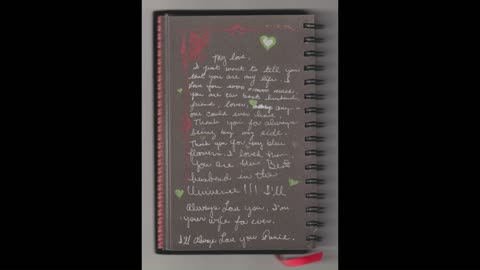 My love,
I just want to tell you
that you are my life. I
love you even more,
you are the best husband,
friend, lover, any-
one could ever have.
Thank you for always
being by my side.
Thank you for my blue
flowers. I loved
You are the Best
husband in the
Universe!!! I'll
Always Love you, I'm
your wife for ever.
I'll Always Love you Prince.